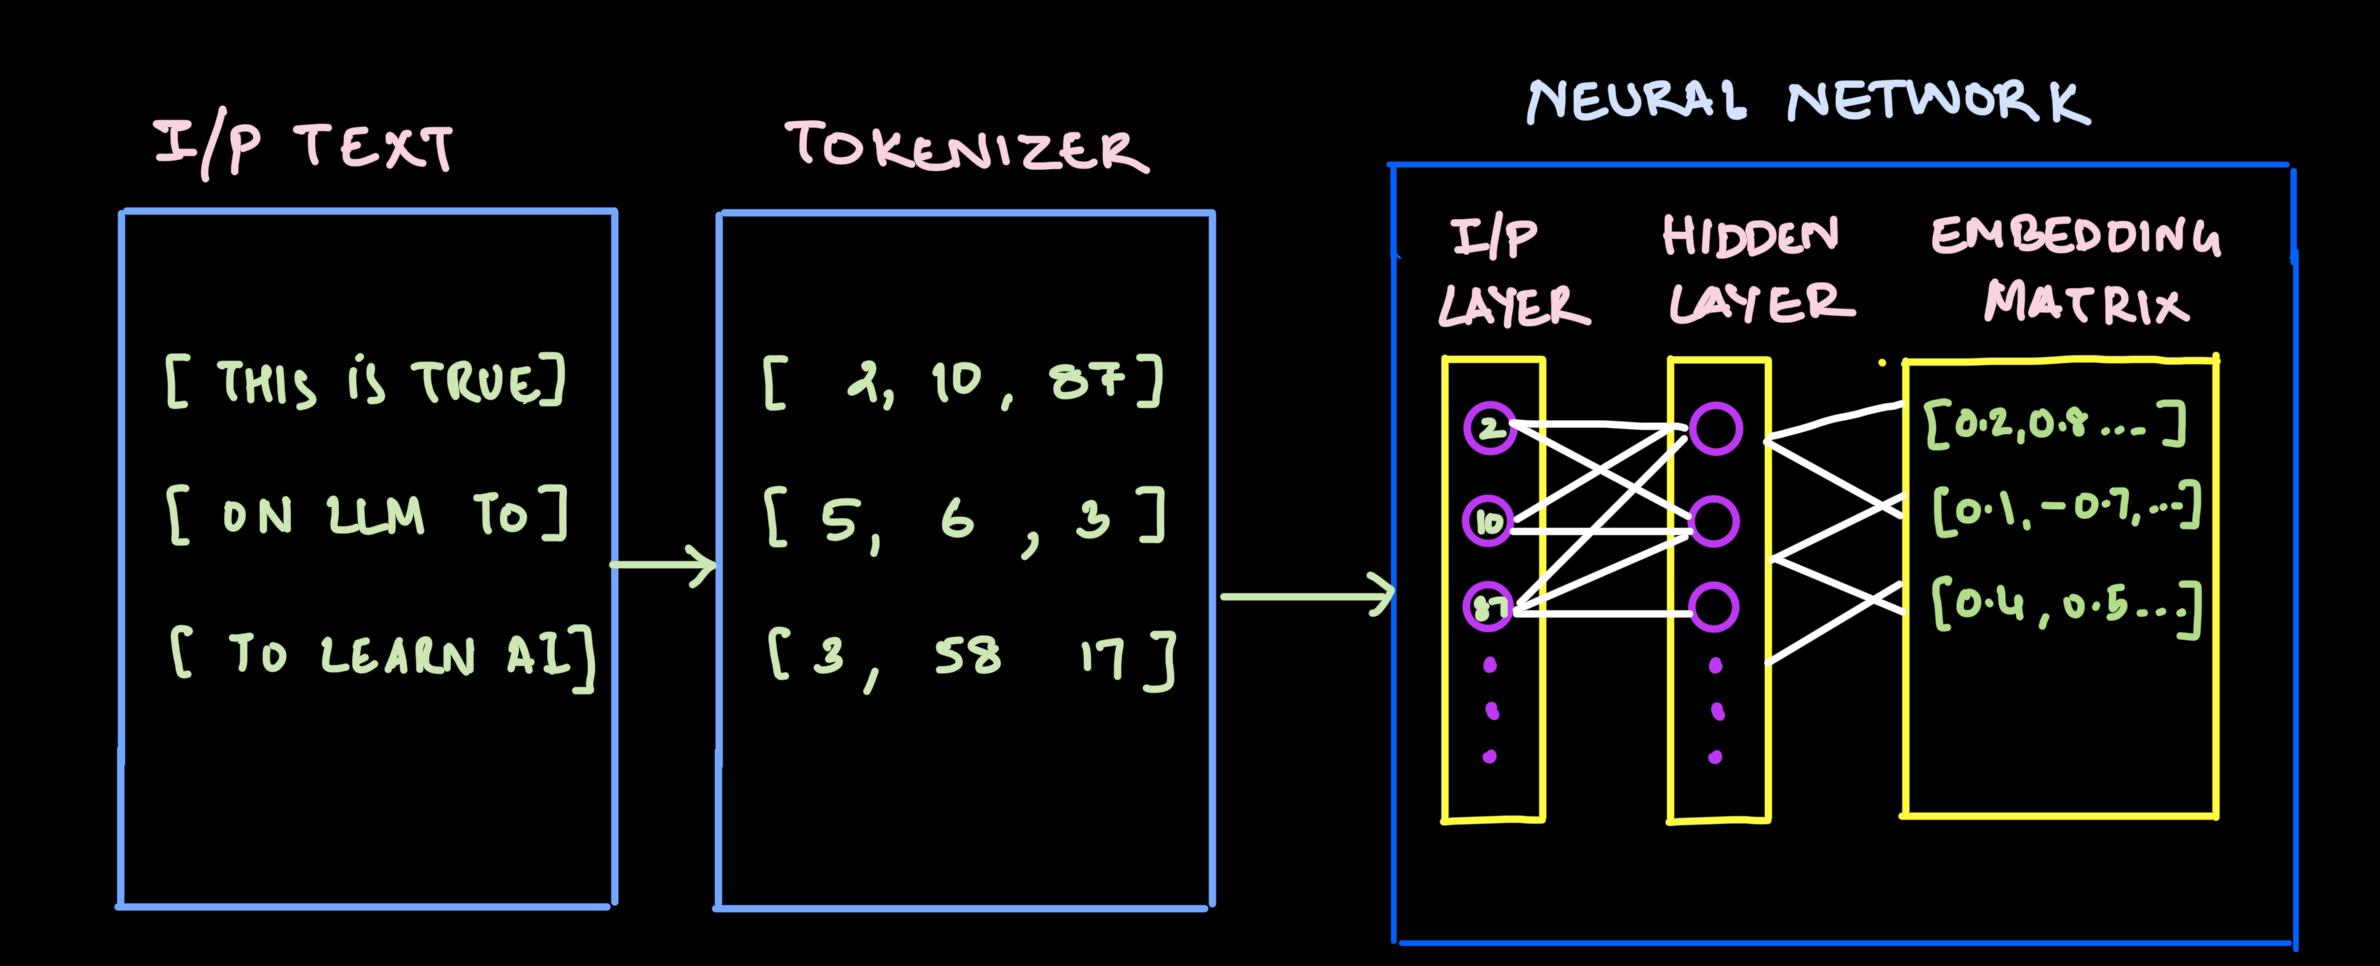 I/P TEXT
[ THIS iS TRUE]
[ ON LLM TO ]
[ TO LEARN AI]
TOKENIZER
[ 2, 10, 87 ]
[ 5, 6, 3 ]
[ 3, 58 17 ]
NEURAL NETWORK
I/P
LAYER
2
10
87
HIDDEN
LAYER
EMBEDDING
MATRIX
[0.2,0.8... ]
[0.1, -0.7, ...]
[0.4, 0.5...]